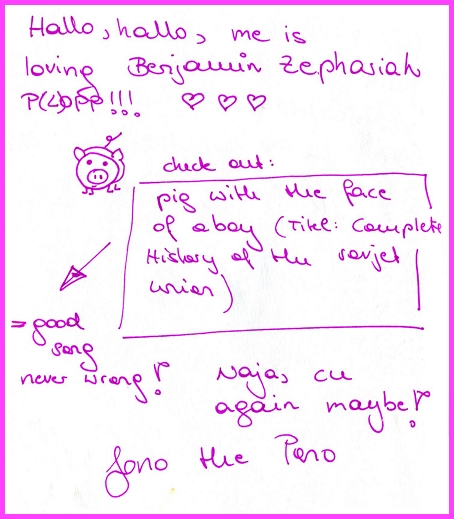 Hallo, hallo, me is
loving Benjamin Zephaniah
P(L)OPP!!! ♡ ♡ ♡
check out:
pig with the face
of a boy (Titel: Complete
History of the sovjet
union)
= good
song
never wrong!
Naja, cu
again maybe!
Jono the Pono